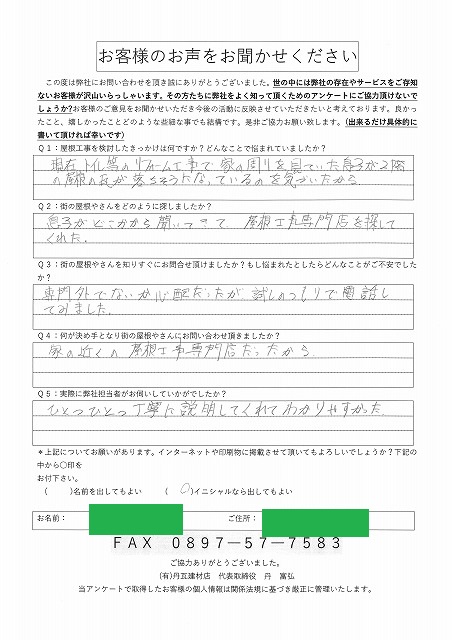 お客様のお声をお聞かせください
この度は弊社にお問い合わせを頂き誠にありがとうございました。世の中には弊社の存在やサービスをご存知
ないお客様が沢山いらっしゃいます。その方たちに弊社をよく知って頂くためのアンケートにご協力頂けないで
しょうか?お客様のご意見をお聞かせいただき今後の活動に反映させていただきたいと考えております。良かっ
たこと、嬉しかったことどのような些細な事でも結構です。是非ご協力お願い致します。(出来るだけ具体的に
書いて頂ければ幸いです)
Q1:屋根工事を検討したきっかけは何ですか?どんなことで悩まれていましたか?
現在トイレ等のリフォーム工事で家の周りを見ていた息子が2階
の屋根の瓦が落ちそうになっているのを気づいたから
Q2:街の屋根やさんをどのように探しましたか?
息子がどこかから聞いてきて 屋根工事専門店を探して
くれた.
Q3:街の屋根やさんを知りすぐにお問合せ頂けましたか?もし悩まれたとしたらどんなことがご不安でした
か?
専門外でないか心配だったが、試しのつもりで電話し
てみました.
Q4:何が決め手となり街の屋根やさんにお問い合わせ頂きましたか?
家の近くの屋根工事専門店だったから.
Q5:実際に弊社担当者がお伺いしていかがでしたか?
ひとつひとつ丁寧に説明してくれてわかりやすかった
*上記についてお願いがあります。インターネットや印刷物に掲載させて頂いてもよろしいでしょうか?下記の
中から〇印を
お付下さい。
( )名前を出してもよい (○)イニシャルなら出してもよい
お名前: ご住所:
FAX 0897-57-7583
ご協力ありがとうございました。
(有)丹瓦建材店 代表取締役 丹 富弘
当アンケートで取得したお客様の個人情報は関係法規に基づき厳正に管理いたします。